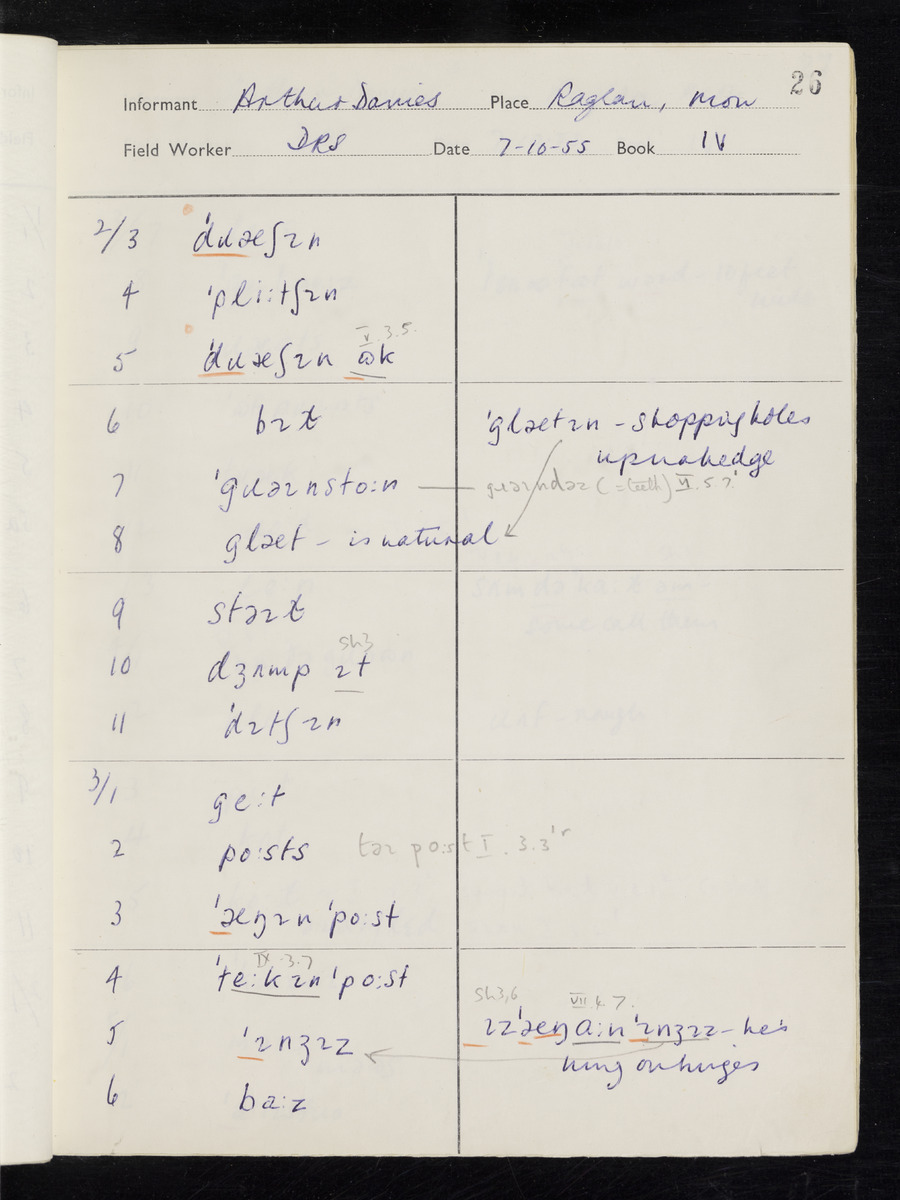 26
Informant Arthur Davies Place Raglan, Mon
Field Worker DRS Date 7-10-55 Book IV
2/3 ˈdɹæʃɪn
4 ˈpliːtʃɪn
5 ˈdɹæʃɪn ʊk V.3.5.
6 bɪt ˈglætɪn - stopping holes
up in a hedge
7 ˈgɹəɪnstoːn — gɹəɪndəɪ (= teeth) VI.5.7.
8 glæt - is natural
9 stəɪt
10 dʒʌmp ɪt Sh3
11 ˈdɪtʃɪn
3/1 geːt
2 poːsts təɪ poːst I.3.3
3 ˈæŋɪn ˈpoːst
4 ˈteːkɪn ˈpoːst IX.3.7
Sh3,6 VII.4.7.
5 ˈɪnʒɪz ɪz ˈæŋ aːn ˈɪnʒɪz - he's
hung on hinges
6 baːz